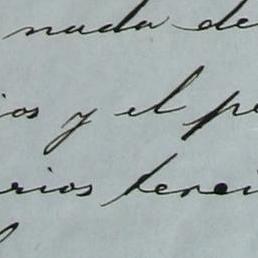 nada de
ios y el pe
rios terci